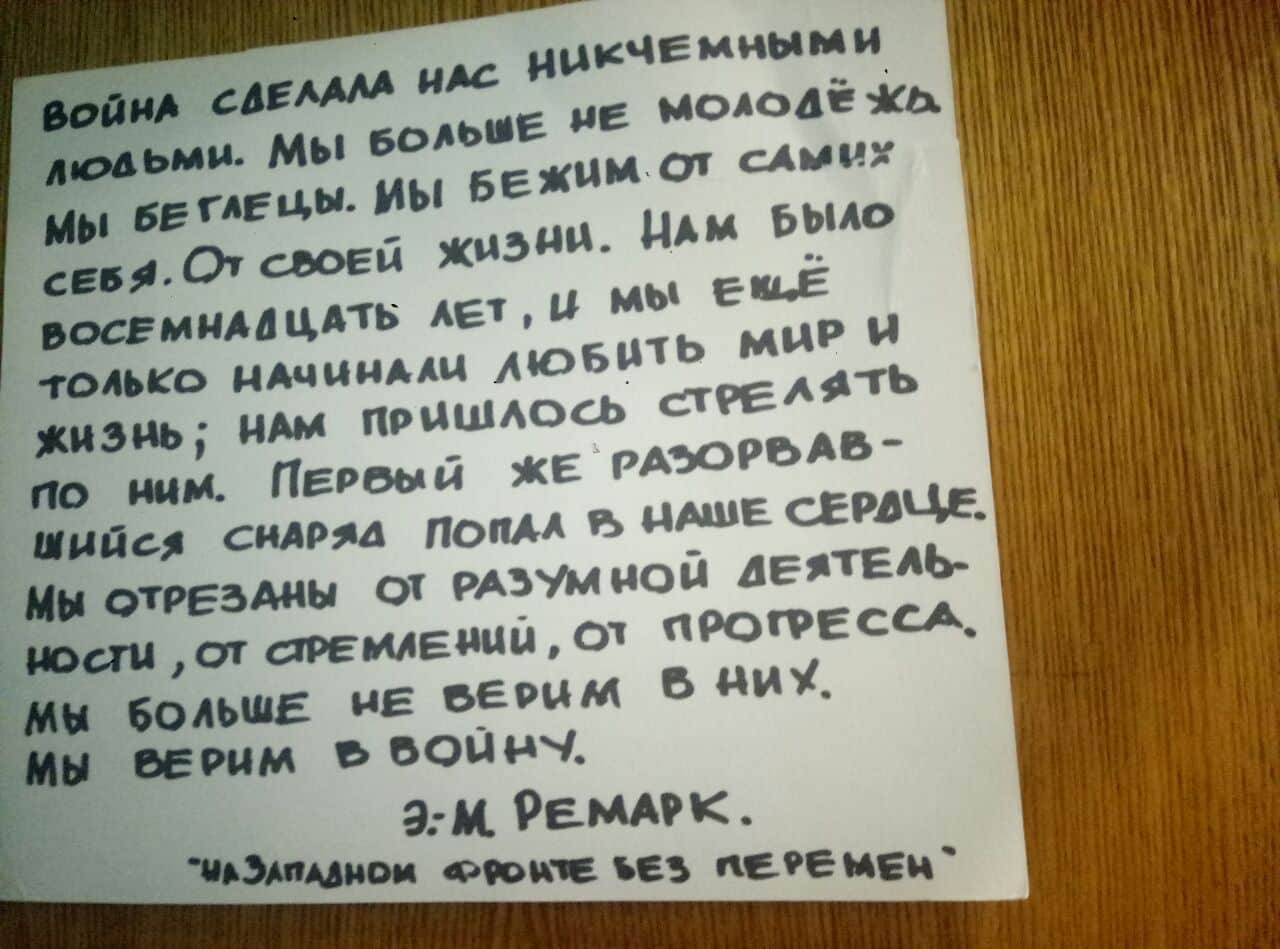 Война сделала нас никчемными
людьми. Мы больше не молодёжь
Мы беглецы. Мы бежим от самих
себя. От своей жизни. Нам было
восемнадцать лет, и мы ещё
только начинали любить мир и
жизнь; нам пришлось стрелять
по ним. Первый же разорвав-
шийся снаряд попал в наше сердце.
Мы отрезаны от разумной деятель-
ности, от стремлений, от прогресса.
Мы больше не верим в них.
Мы верим в войну.
Э.-М. Ремарк.
"На Западном фронте без перемен"